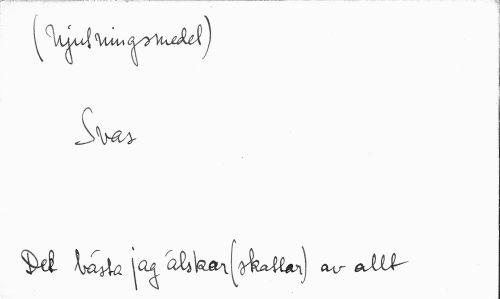 (Njutningsmedel)
Svas
Det bästa jag älskar (skattar) av allt